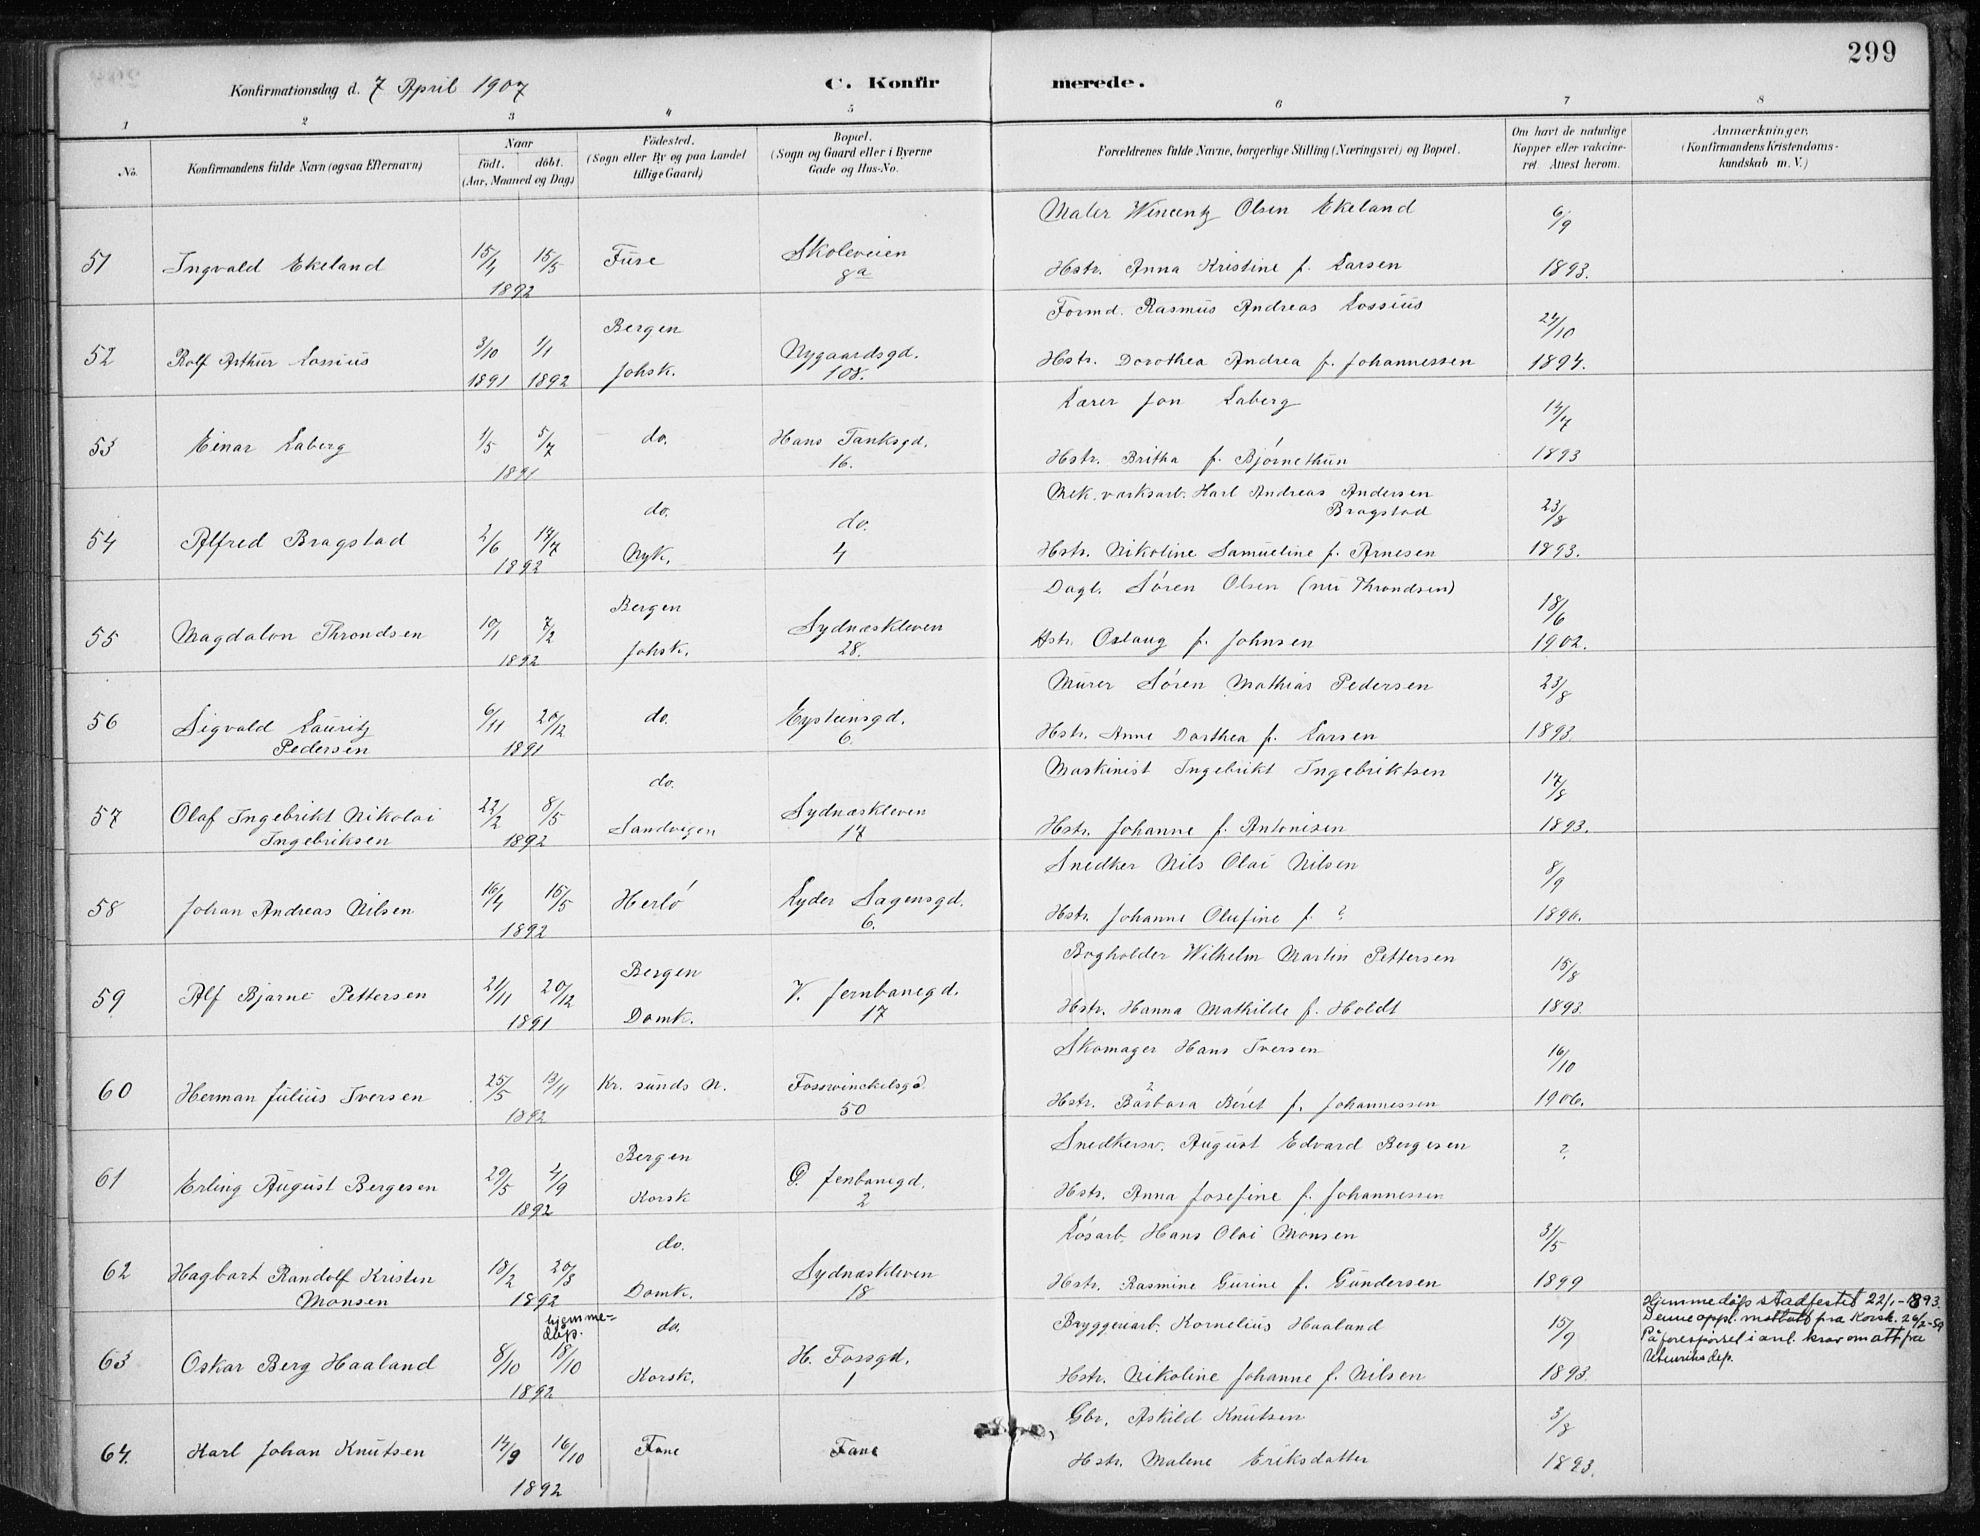 299
Konfirmationsdag d. 7 April 1907
C. Konfirmerede.
1 2 3 4 5 6 7 8
No.
Konfirmandens fulde Navn (ogsaa Efternavn)
Naar
født. døbt.
(Aar, Maaned og Dag)
Fødested.
(Sogn eller By og paa Landet
tillige Gaard)
Bopæl.
(Sogn og Gaard eller i Byerne
Gade og Hus-No.
Forældrenes fulde Navne, borgerlige Stilling (Næringsvei) og Bopæl.
Om havt de naturlige
Kopper eller vakcine-
ret. Attest herom.
Anmærkninger.
(Konfirmandens Kristendoms-
kundskab m. V.)
Maler Wincentz Olsen Ekeland 6/9
51 Ingvald Ekeland 15/4 15/5 Fuse Skoleveien
8a
Hstr. Anna Kristine f. Larsen 1893.
1892
Bergen Formd. Rasmus Andreas Lossius 24/10
52 Rolf Arthur Lossius 3/10 1/1 Nygaardsgd.
1891 1892 Johsk. 108. Hstr. Dorothea Andrea f. Johannessen 1894.
Lærer Jon Laberg 14/4
53 Einar Laberg 1/5 5/7 do. Hans Tanksgd.
1891 16. Hstr. Britha f. Bjørnethun 1893
do. do. Mek. værksarb. Karl Andreas Andersen
Bragstad 23/8
54 Alfred Bragstad 2/6 17/7 Nyk. 4
1892 Hstr. Nikoline Samueline f. Arnesen 1893.
Bergen Dagl. Søren Olsen (nu Throndsen) 18/6
55 Magdalon Throndsen 10/1 7/2 Sydnæskleven
1892 Johsk. 28. Hstr. Oslaug f. Johnsen 1902.
Murer Søren Mathias Pedersen 23/8
56 Sigvald Lauritz
Pedersen 6/11 20/12 do. Eysteinsgd.
1891 6. Hstr. Anne Dorthea f. Larsen 1893.
do. Maskinist Ingebrikt Ingebriktsen 17/8
57 Olaf Ingebrikt Nikolai
Ingebriksen 22/2 8/5 Sydnæskleven
1892 Sandvigen 17 Hstr. Johanne f. Antonisen 1893.
Snedker Nils Olai Nilsen 8/9
58 Johan Andreas Nilsen 16/4 15/5 Herlø Lyder Sagensgd.
1892 6. Hstr. Johanne Olufine f. ? 1896.
Bergen Bogholder Wilhelm Martin Pettersen 15/8
59 Alf Bjarne Pettersen 21/11 20/12 V. Jernbanegd.
1891 Domk. 17 Hstr. Hanna Mathilde f. Holdt 1893.
Skomager Hans Iversen 16/10
60 Herman Julius Iversen 25/5 13/11 Kr. sunds N. Fosswinckelsgd.
1892 50 Hstr. Barbara Beret f. Johannessen 1906.
Bergen Snedkersv. August Edvard Bergesen ?
61 Erling August Bergesen 29/5 4/9 Ø. Jenbanegd.
1892 Korsk 2 Hstr. Anna Josefine f. Johannessen
do. Løsarb. Hans Olai Monsen 31/5
62 Hagbart Randolf Kristen
Monsen 18/2 20/3 Sydnæskleven
1892 Domk. 18 Hstr. Rasmine Gurine f. Gundersen 1899
hjemme-
døp.
do. Bryggeriarb. Kornelius Haaland 15/9
Hjemmedåps stadfestet 22/1-1893.
Denne oppl. mottatt fra Korsk. 26/2-59
På forespørsel i anl. krav om att. fra
Utenriksdep.
63 Oskar Berg Haaland 8/10 18/10 H. Fossgd.
1892 Korsk. 1 Hstr. Nikoline Johanne f. Nilsen 1893.
Gbr. Askild Knutsen 3/8
64. Karl Johan Knutsen 14/9 16/10 Fane Fane
1892 Hstr. Malene Eriksdatter 1893.